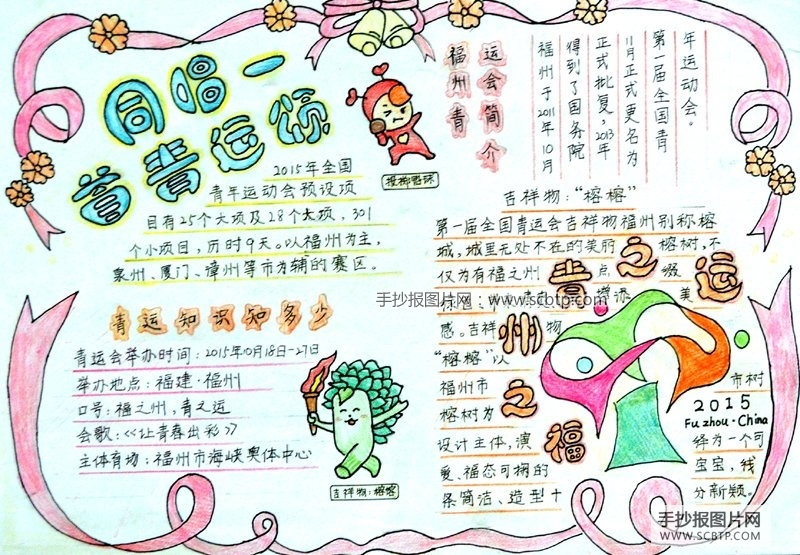 同唱一
首青运颂
2015年全国
青年运动会预设项
目有25个大项及28个大项，301
个小项目，历时9天。以福州为主，
泉州、厦门、漳州等市为辅的赛区。
福州青
运会简介
福州于2011年10月
得到了国务院
正式批复，2013
11月正式更名为
第一届全国青
年运动会。
吉祥物：“榕榕”
第一届全国青运会吉祥物福州别称榕
城，城里无处不在的美丽 榕树，不
仅为有福之州 点 缀
增添 美
感。吉祥 物
“榕榕”以
福州市 市树
榕树为
设计主体，演 绎为一个可
爱、福态可掬的 宝宝，线
条简洁、造型十 分新颖。
青之运
州
之
福
2015
Fuzhou·China
青运知识知多少
青运会举办时间：2015年10月18日-27日
举办地点：福建·福州
口号：福之州，青之运
会歌：《让青春出彩》
主体育场：福州市海峡奥体中心
吉祥物：榕榕
手抄报图片网 www.scbtp.com
手抄报图片网
WWW.SCBTP.COM